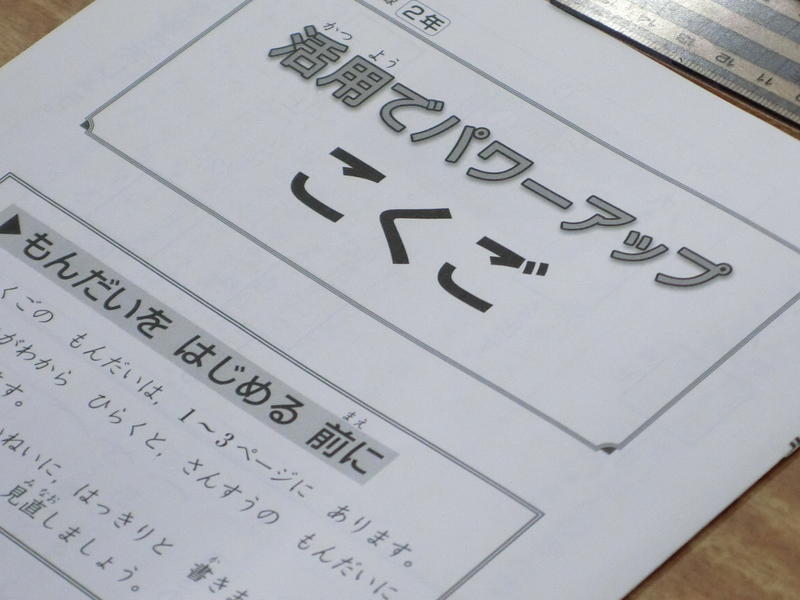 2年
かつ よう
活用でパワーアップ
こくご
▶もんだいを はじめる 前に
まえ
くごの もんだいは、1〜3ページに あります。
がわから ひらくと、さんすうの もんだいに
ます。
いねいに、はっきりと 書きま
か
見直しましょう。
みなお
14 13 12 11